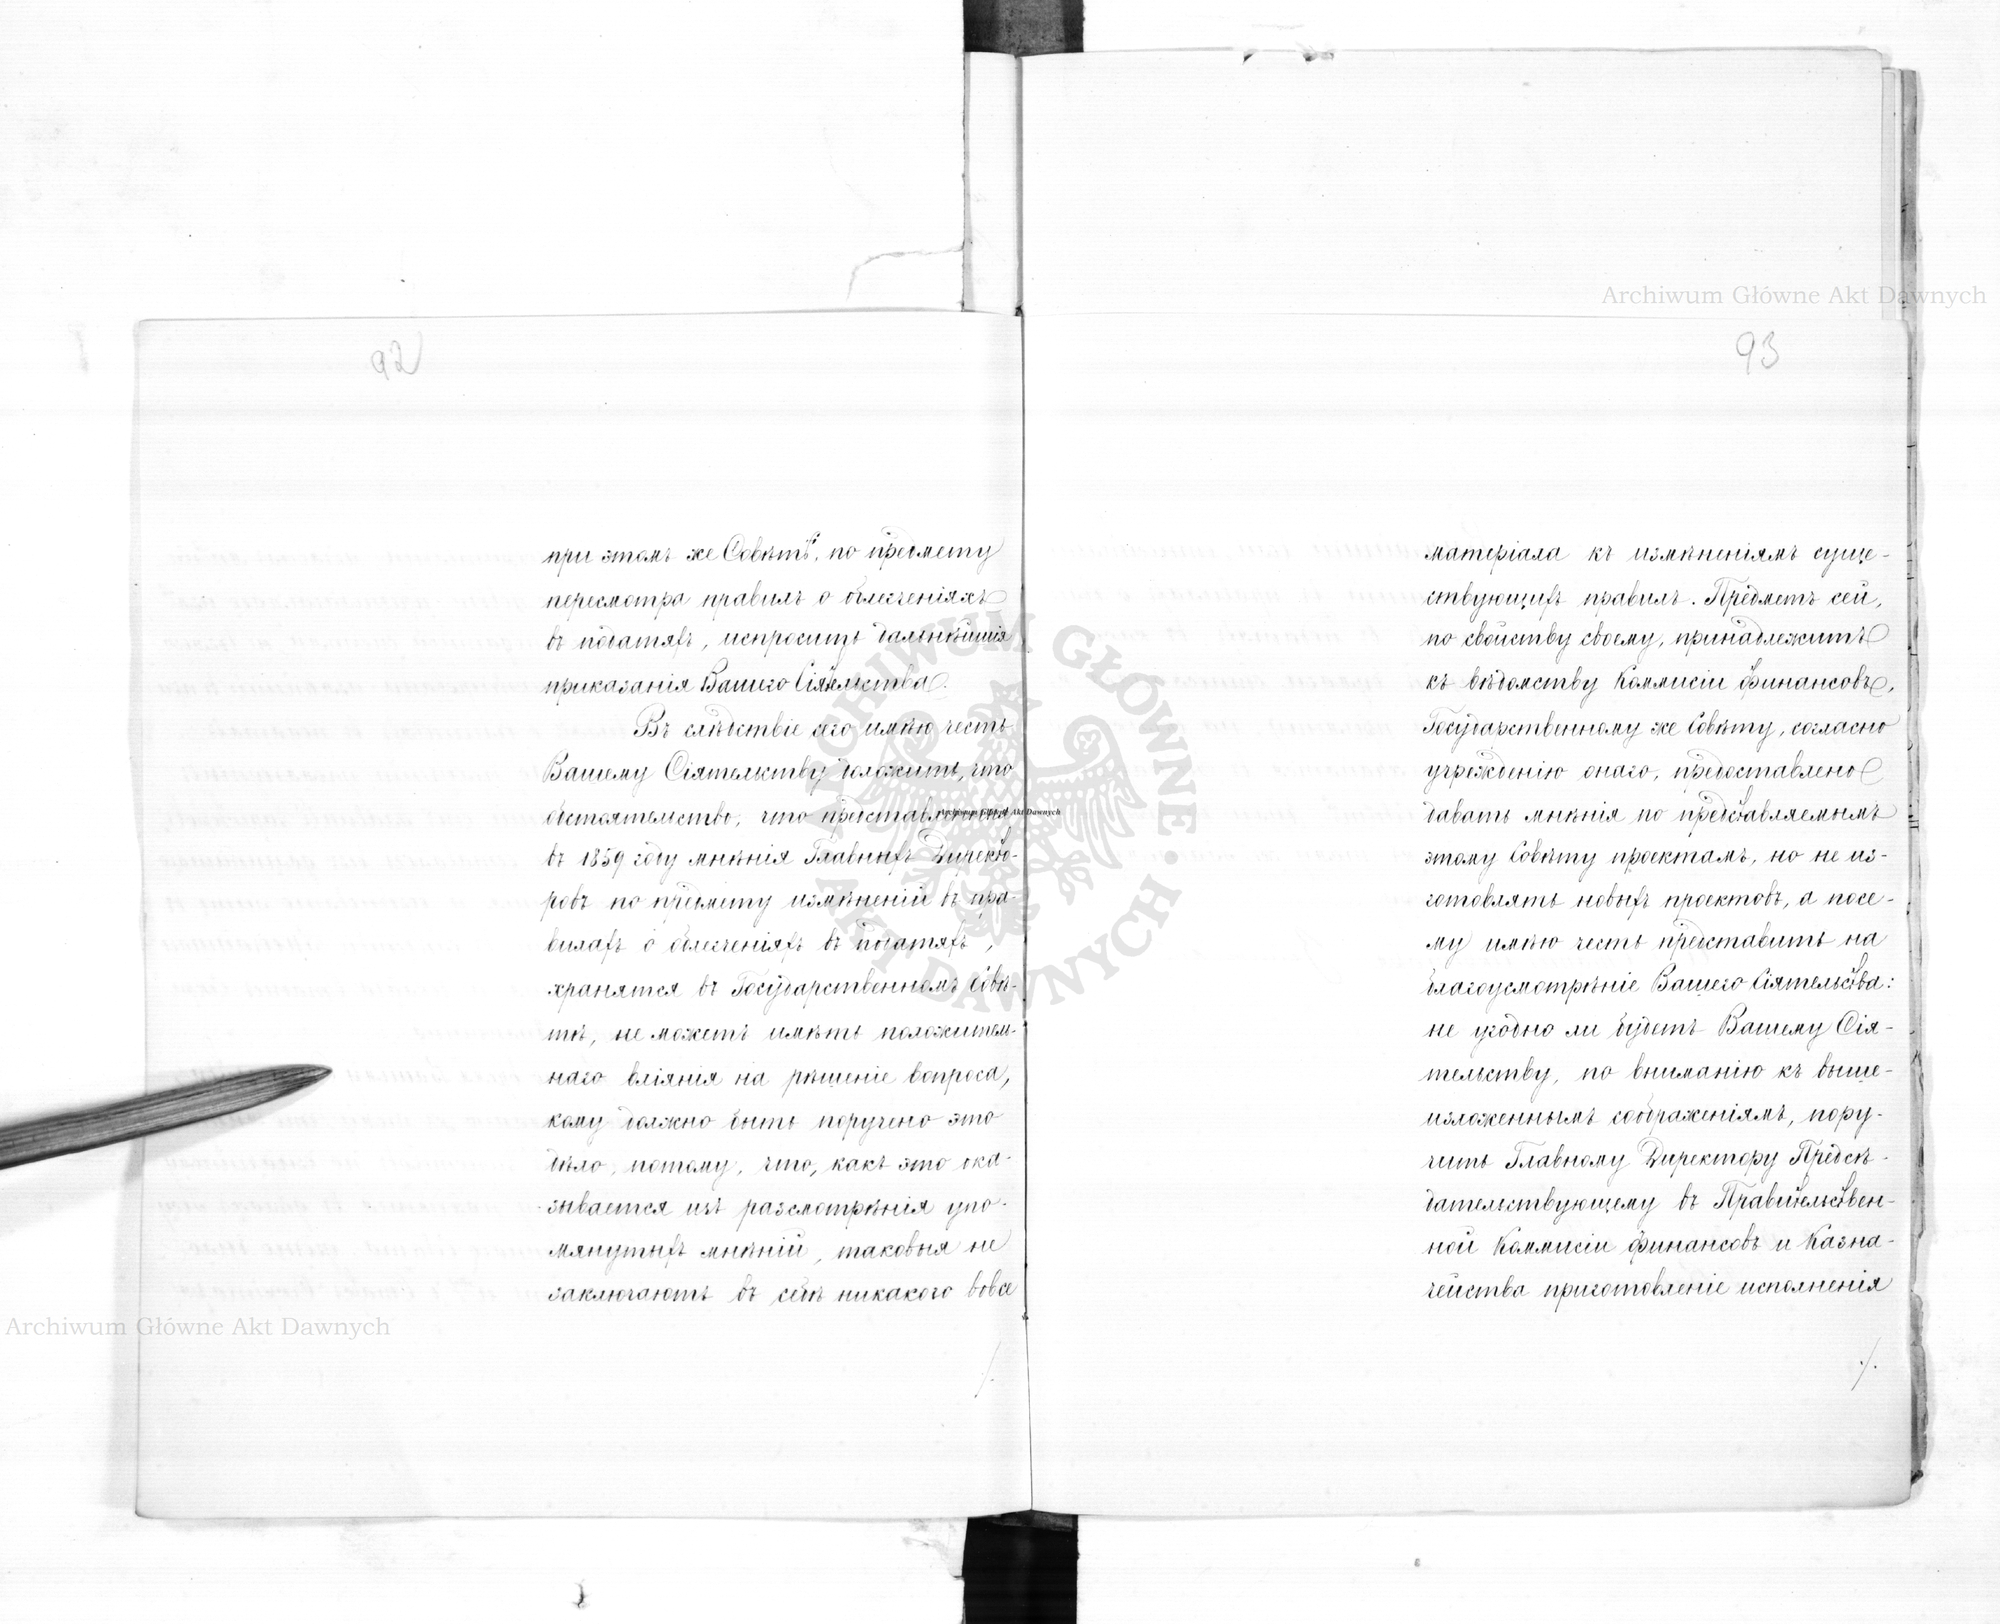 92
при этомъ же Совѣтѣ, по предмету
пересмотра правилъ о облегченіяхъ
въ податяхъ, испросить дальнѣйшія
приказанія Вашего Сіятельства.
Въ слѣдствіе сего имѣю честь
Вашему Сіятельству доложить, что
обстоятельство, что
въ 1859 году мнѣнія Главныхъ Директо-
ровъ по предмету измѣненій въ пра-
вилахъ о облегченіяхъ въ податяхъ,
хранятся въ Государственномъ Совѣ-
тѣ, не можетъ имѣть положитель-
наго вліянія на рѣшеніе вопроса,
кому должно быть поручено это
дѣло, потому, что, какъ это ока-
зывается изъ разсмотрѣнія упо-
мянутыхъ мнѣній, таковыя не
заключаютъ въ себѣ никакого вовсе
./.
93
матеріала къ измѣненіямъ суще-
ствующихъ правилъ. Предметъ сей,
по свойству своему, принадлежитъ
къ вѣдомству Коммисіи Финансовъ,
Государственному же Совѣту, согласно
учрежденію онаго, предоставлено
давать мнѣнія по представляемымъ
этому Совѣту проектамъ, но не из-
готовлять новыхъ проектовъ, а посе-
му имѣю честь представить на
благоусмотрѣніе Вашего Сіятельства:
не угодно ли будетъ Вашему Сія-
тельству, по вниманію къ выше-
изложеннымъ соображеніямъ, пору-
чить Главному Директору Предсѣ-
дательствующему въ Правительствен-
ной Коммисіи Финансовъ и Казна-
чейства приготовленіе исполненія
./.
Archiwum Główne Akt Dawnych
Archiwum Główne Akt Dawnych
Archiwum Główne Akt Dawnych
ARCHIWUM GŁÓWNE AKT DAWNYCH